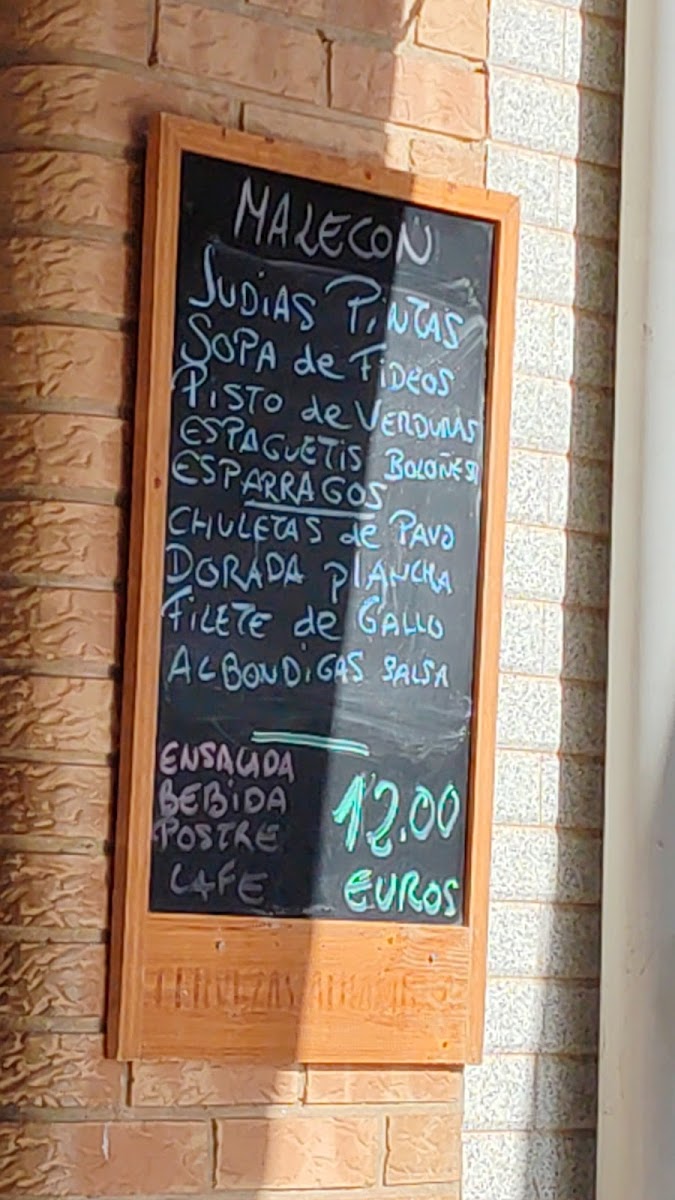 MALECON
JUDIAS PINTAS
SOPA de FIDEOS
PISTO de VERDURAS
ESPAGUETIS BOLOÑESA
ESPARRAGOS
CHULETAS de PAVO
DORADA PLANCHA
FILETE de GALLO
ALBONDIGAS SALSA
ENSALADA
BEBIDA
POSTRE
CAFE
12.00
EUROS
CERVEZAS